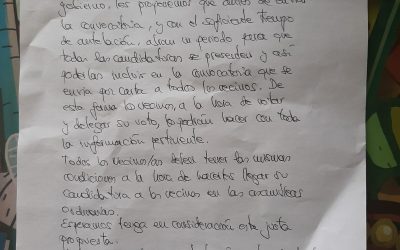 gobierno, les proponemos que antes de enviar
la convocatoria, y con el suficiente tiempo
de antelación, abran un periodo para que
todas las candidaturas se presenten y así
poderlas incluir en la convocatoria que se
envía por carta a todos los vecinos. De
esta forma los vecinos, a la hora de votar
y delegar su voto, lo podrán hacer con toda
la información pertinente.
Todos los vecinos/as deben tener las mismas
condiciones a la hora de hacerles llegar su
candidatura a los vecinos en las asambleas
ordinarias.
Esperamos tenga en consideración esta justa
propuesta.